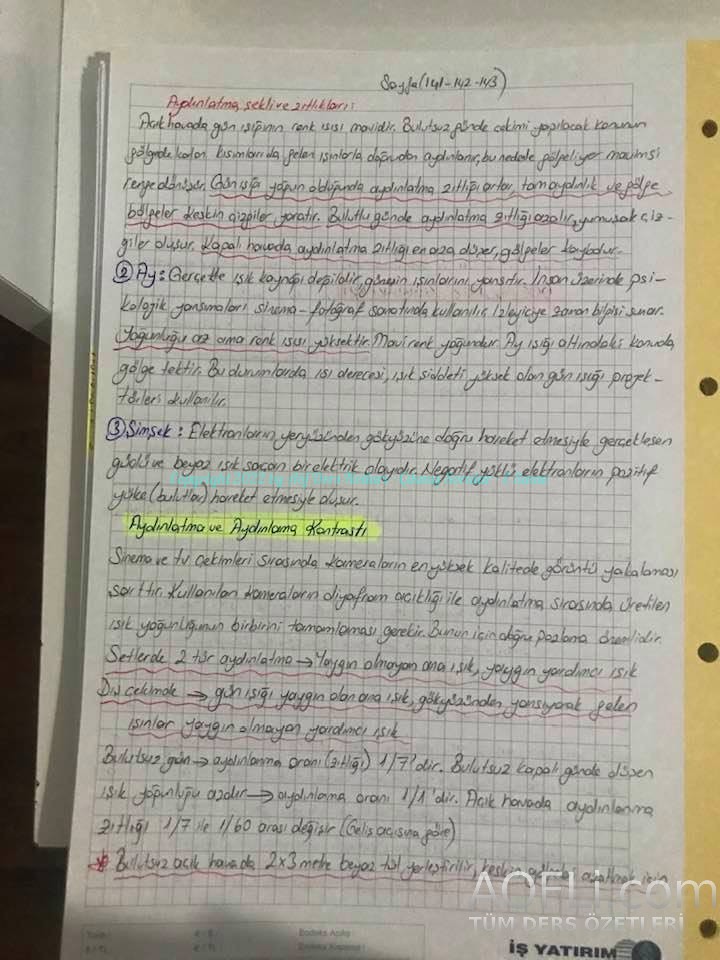 Sayfa (141-142-143)
Aydınlatma şekli ve zıtlıkları:
Açık havada gün ışığının renk ısısı mavidir. Bulutsuz günde çekimi yapılacak konunun
gölgede kalan kısımları da gelen ışınlarla doğrudan aydınlanır, bu nedenle gölgeli yer mavimsi
renge dönüşür. Gün ışığı yoğun olduğunda aydınlatma zıtlığı artar, tam aydınlık ve gölge
bölgeler keskin çizgiler yaratır. Bulutlu günde aydınlatma zıtlığı azalır, yumuşak çiz-
giler oluşur. Kapalı havada aydınlatma zıtlığı en aza düşer, gölgeler kaybolur.
② Ay: Gerçekte ışık kaynağı değildir, güneşin ışınlarını yansıtır. İnsan üzerinde psi-
kolojik yansımaları sinema-fotoğraf sanatında kullanılır. İzleyiciye zaman bilgisi sunar.
Yoğunluğu az ama renk ısısı yüksektir. Mavi renk yoğundur. Ay ışığı altındaki konuda
gölge tektir. Bu durumlarda ısı derecesi, ışık şiddeti yüksek olan gün ışığı projek-
törleri kullanılır.
③ Şimşek: Elektronların yeryüzünden gökyüzüne doğru hareket etmesiyle gerçekleşen
güçlü ve beyaz ışık saçan bir elektrik olayıdır. Negatif yüklü elektronların pozitif
yüke (bulutlar) hareket etmesiyle oluşur.
Aydınlatma ve Aydınlama Kontrastı
Sinema ve tv çekimleri sırasında kameraların en yüksek kalitede görüntü yakalaması
şarttır. Kullanılan kameraların diyafram açıklığı ile aydınlatma sırasında üretilen
ışık yoğunluğunun birbirini tamamlaması gerekir. Bunun için doğru pozlama önemlidir.
Setlerde 2 tür aydınlatma → Yaygın olmayan ana ışık, yaygın yardımcı ışık
Dış çekimde → gün ışığı yaygın olan ana ışık, gökyüzünden yansıyarak gelen
ışınlar yaygın olmayan yardımcı ışık
Bulutsuz gün → aydınlanma oranı (zıtlığı) 1/7'dir. Bulutsuz kapalı günde düşen
ışık yoğunluğu azdır → aydınlama oranı 1/1'dir. Açık havada aydınlanma
zıtlığı 1/7 ile 1/60 arası değişir (Geliş açısına göre)
* Bulutsuz açık havada 2x3 metre beyaz tül yerleştirilir, keskin gölgeleri azaltmak için
AOFLI.com
TÜM DERS ÖZETLERİ
Endeks Açılış:
Endeks Kapanış:
İŞ YATIRIM